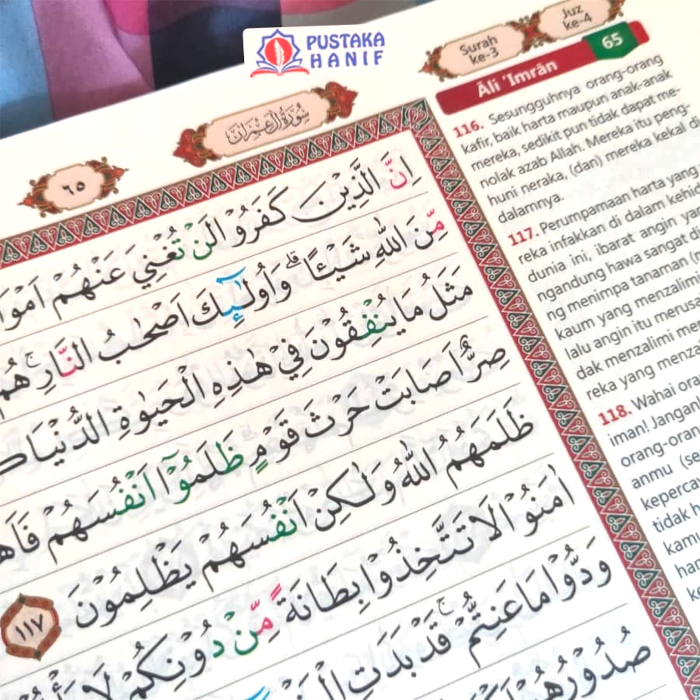 PUSTAKA
HANIF
Surah
ke-3
Juz
ke-4
Āli 'Imrān
65
سُوْرَةُ اٰلِ عِمْرَانَ
٦٥
اِنَّ الَّذِيْنَ كَفَرُوْا لَنْ تُغْنِيَ عَنْهُمْ اَمْوَا
مِّنَ اللّٰهِ شَيْـًٔاۗ وَاُولٰۤىِٕكَ اَصْحٰبُ النَّارِۚ هُمْ
مَثَلُ مَا يُنْفِقُوْنَ فِيْ هٰذِهِ الْحَيٰوةِ الدُّنْيَا
صِرٌّ اَصَابَتْ حَرْثَ قَوْمٍ ظَلَمُوْٓا اَنْفُسَهُمْ فَاَهْ
ظَلَمَهُمُ اللّٰهُ وَلٰكِنْ اَنْفُسَهُمْ يَظْلِمُوْنَ ١١٧
اٰمَنُوْا لَا تَتَّخِذُوْا بِطَانَةً مِّنْ دُوْنِكُمْ لَا
وَدُّوْا مَا عَنِتُّمْۚ قَدْ بَدَتِ
صُدُوْرُهُمْ
116. Sesungguhnya orang-orang
kafir, baik harta maupun anak-anak
mereka, sedikit pun tidak dapat me-
nolak azab Allah. Mereka itu peng-
huni neraka, (dan) mereka kekal di
dalamnya.
117. Perumpamaan harta yang
reka infakkan di dalam
dunia ini, ibarat angin
ngandung hawa sangat
ng menimpa tanaman
kaum yang menzalimi
lalu angin itu
dak menzalimi
reka yang
118. Wahai
iman! Jangan
orang-orang
anmu
tidak
kamu